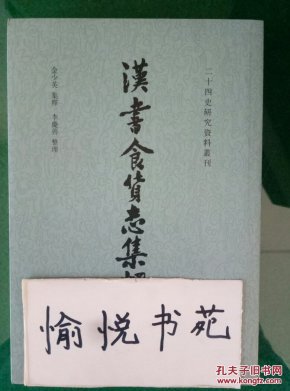 二十四史研究資料叢刊
漢書食貨志集
金少英 集釋 李慶善 整理
愉悦书苑
孔夫子旧书网